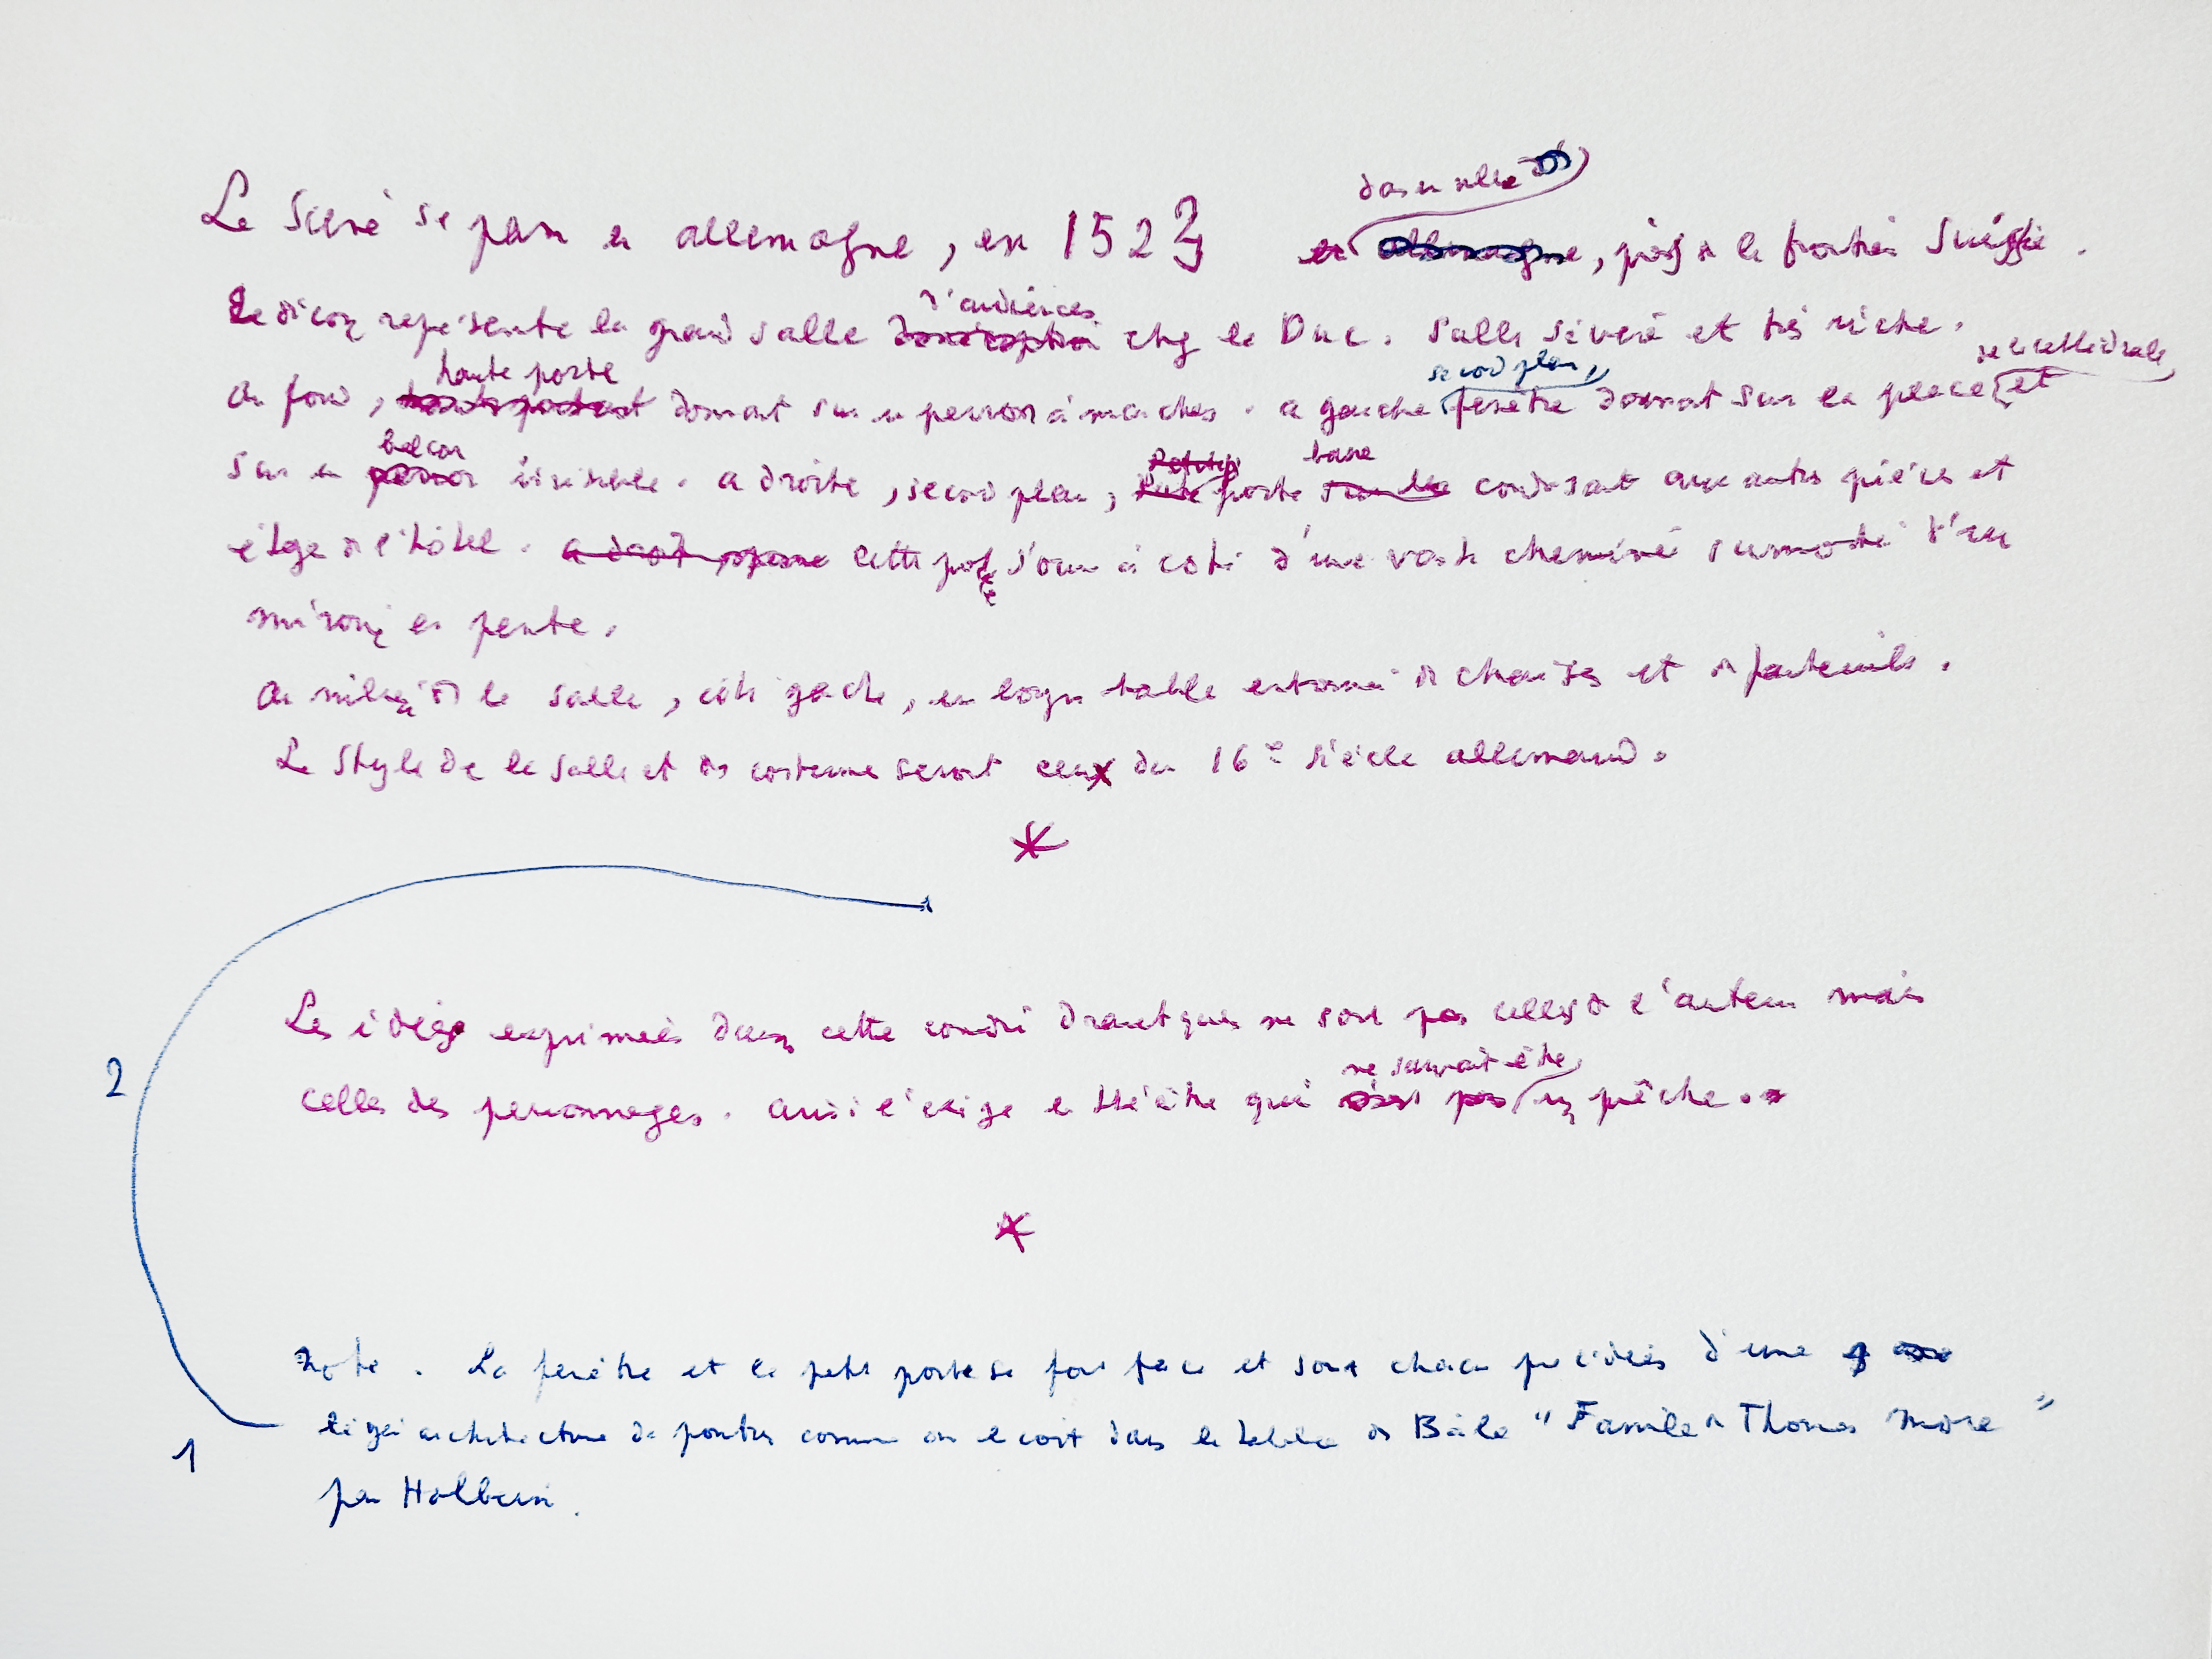 La Scène se passe en allemagne, en 1523 dans une ville, près de la frontière Suisse.
Le décor représente la grande salle d'audiences chez le Duc. Salle sévère et très riche.
Au fond, haute porte donnant sur un perron à marches. a gauche second plan, fenêtre donnant sur la place de la cathédrale et
sur un balcon invisible. a droite, second plan, porte basse conduisant aux autres pièces et
étage de l'hôtel. Cette porte s'ouvre à côté d'une vaste cheminée surmontée d'un
miroir en pente.
Au milieu de la salle, côté gauche, une longue table entourée de chaises et de fauteuils.
Le Style de la salle et des costumes seront ceux du 16e siècle allemand.
*
2
Les idées exprimées dans cette comédie dramatique ne sont pas celles de l'auteur mais
celles des personnages. ainsi l'exige le théâtre qui ne saurait être un prêche.
*
Note. La fenêtre et la petite porte se font face et sont chacune précédées d'une
1
légère architecture de poutres comme on le voit dans le tableau de Bâle "Famille de Thomas More"
par Holbein.